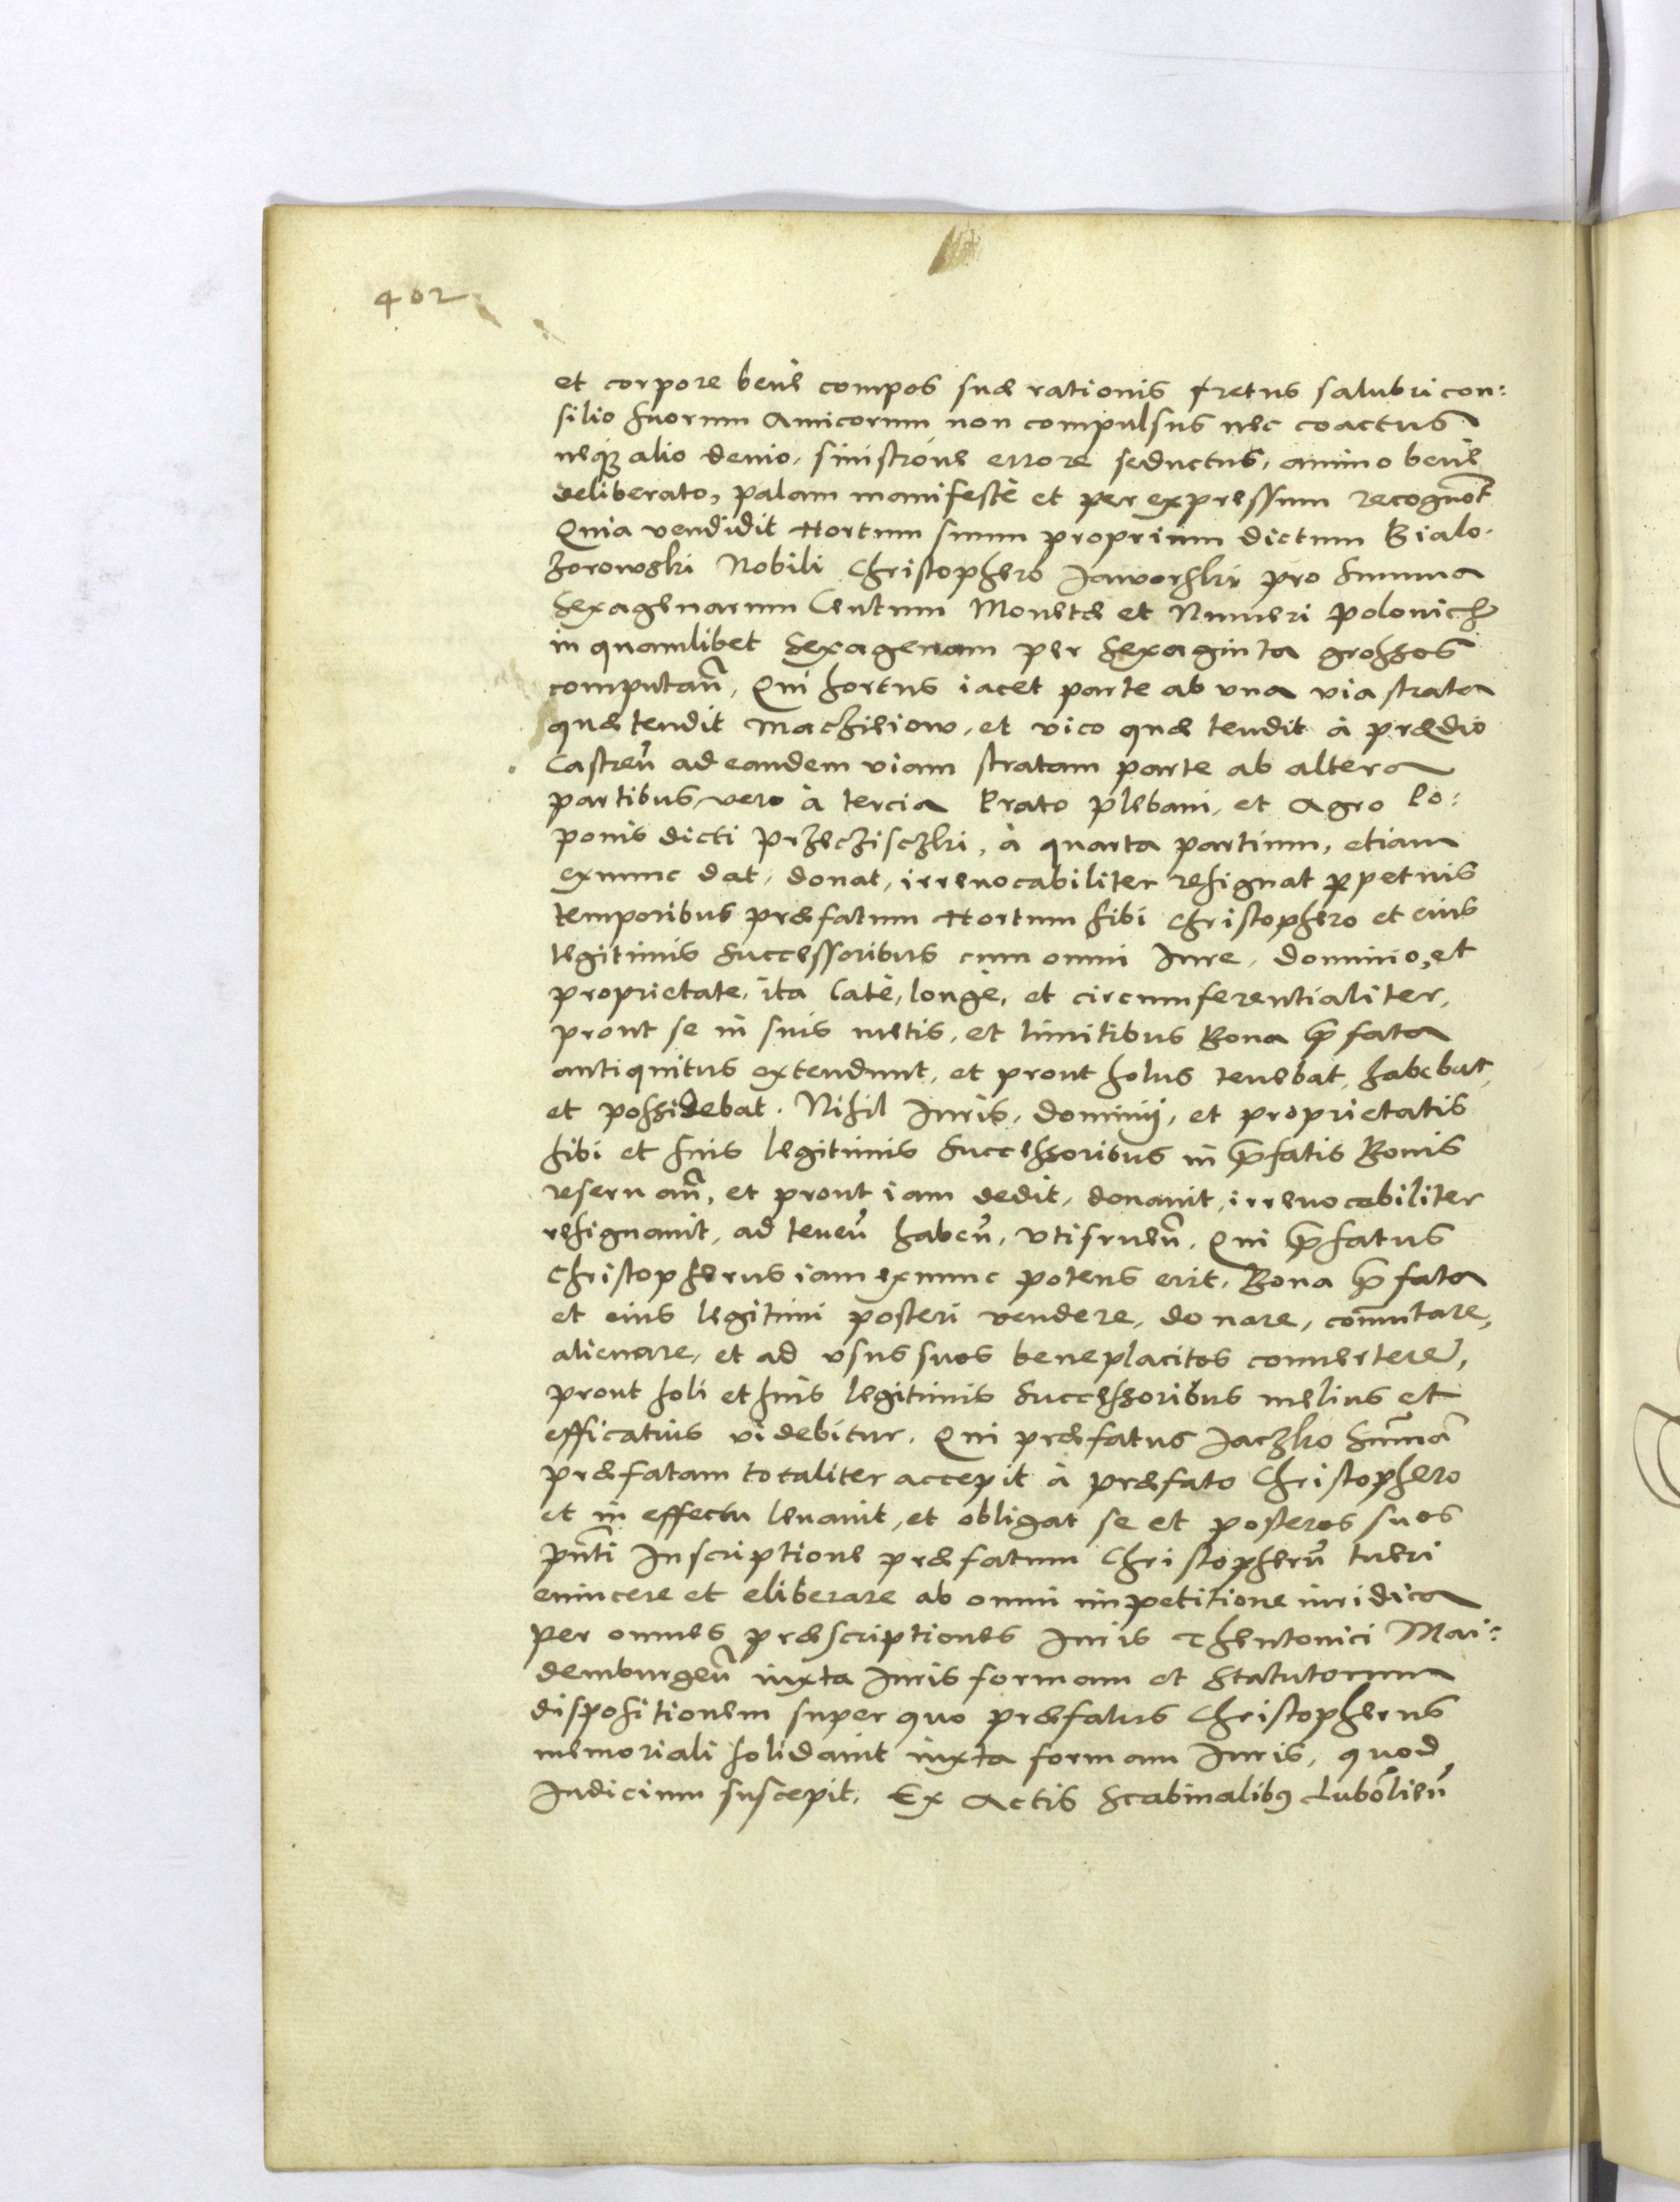 402
et corpore benè compos suæ rationis fretus salubri con:
silio suorum Amicorum non compulsus nec coactus
neq; alio devio, sinistróue errore seductus, animo benè
deliberato, palam manifestè et per expressum recognõt
Quia vendidit Hortum suum proprium dictum Bialo.
zorowski Nobili Christophero Jaworski pro Summa
Sexagenarum Centum Monetæ et Numeri Polonich
in quamlibet Sexagenam per Sexaginta grossos
computañ, Qui hortus iacet parte ab vna via strata
quæ tendit Maczieiow, et vico quæ tendit à prædio
Castreñ ad eandem viam stratam parte ab altera
partibus vero à tercia Prato plebani, et Agro Po:
ponis dicti Przeczisczki, à quarta partium, etiam
exnunc dat, donat, irreuocabiliter resignat ppetuis
temporibus præfatum Hortum sibi Christophero et eius
legitimis Successoribus cum omni Iure, dominio, et
proprietate, ita latè, longè, et circumferentialiter,
prout se in suis metis, et limitibus Bona p̃fata
antiquitus extendunt, et prout solus tenebat, habebat,
et possidebat. Nihil Iuris, dominij, et proprietatis
sibi et suis legitimis Successoribus in p̃fatis Bonis
reseruañ, et prout iam dedit, donauit, irreuocabiliter
resignauit, ad teneñ habeñ, vtifrueñ. Qui p̃fatus
Christopherus iam exnunc potens erit, Bona p̃fata
et eius legitimi posteri vendere, donare, com̃utare,
alienare, et ad vsus suos beneplacitos conuertere,
prout soli et suis legitimis Successoribus melius et
efficatius videbitur. Qui præfatus Jaczko Sum̃ã
præfatam totaliter accepit à præfato Christophero
et in effectu leuauit, et obligat se et posteros suos
pñti Inscriptione præfatum Christopherũ tueri
euincere et eliberare ab omni impetitione iuridica
per omnes præscriptiones Iuiis Theutonici Mai:
demburgeñ iuxta Iuris formam et Statutorum
dispositionem super quo præfatus Christopherus
memoriali solidauit iuxta formam Iuris, quod
Iudicium suscepit. Ex Actis Scabinalibꝰ Lubolieñ